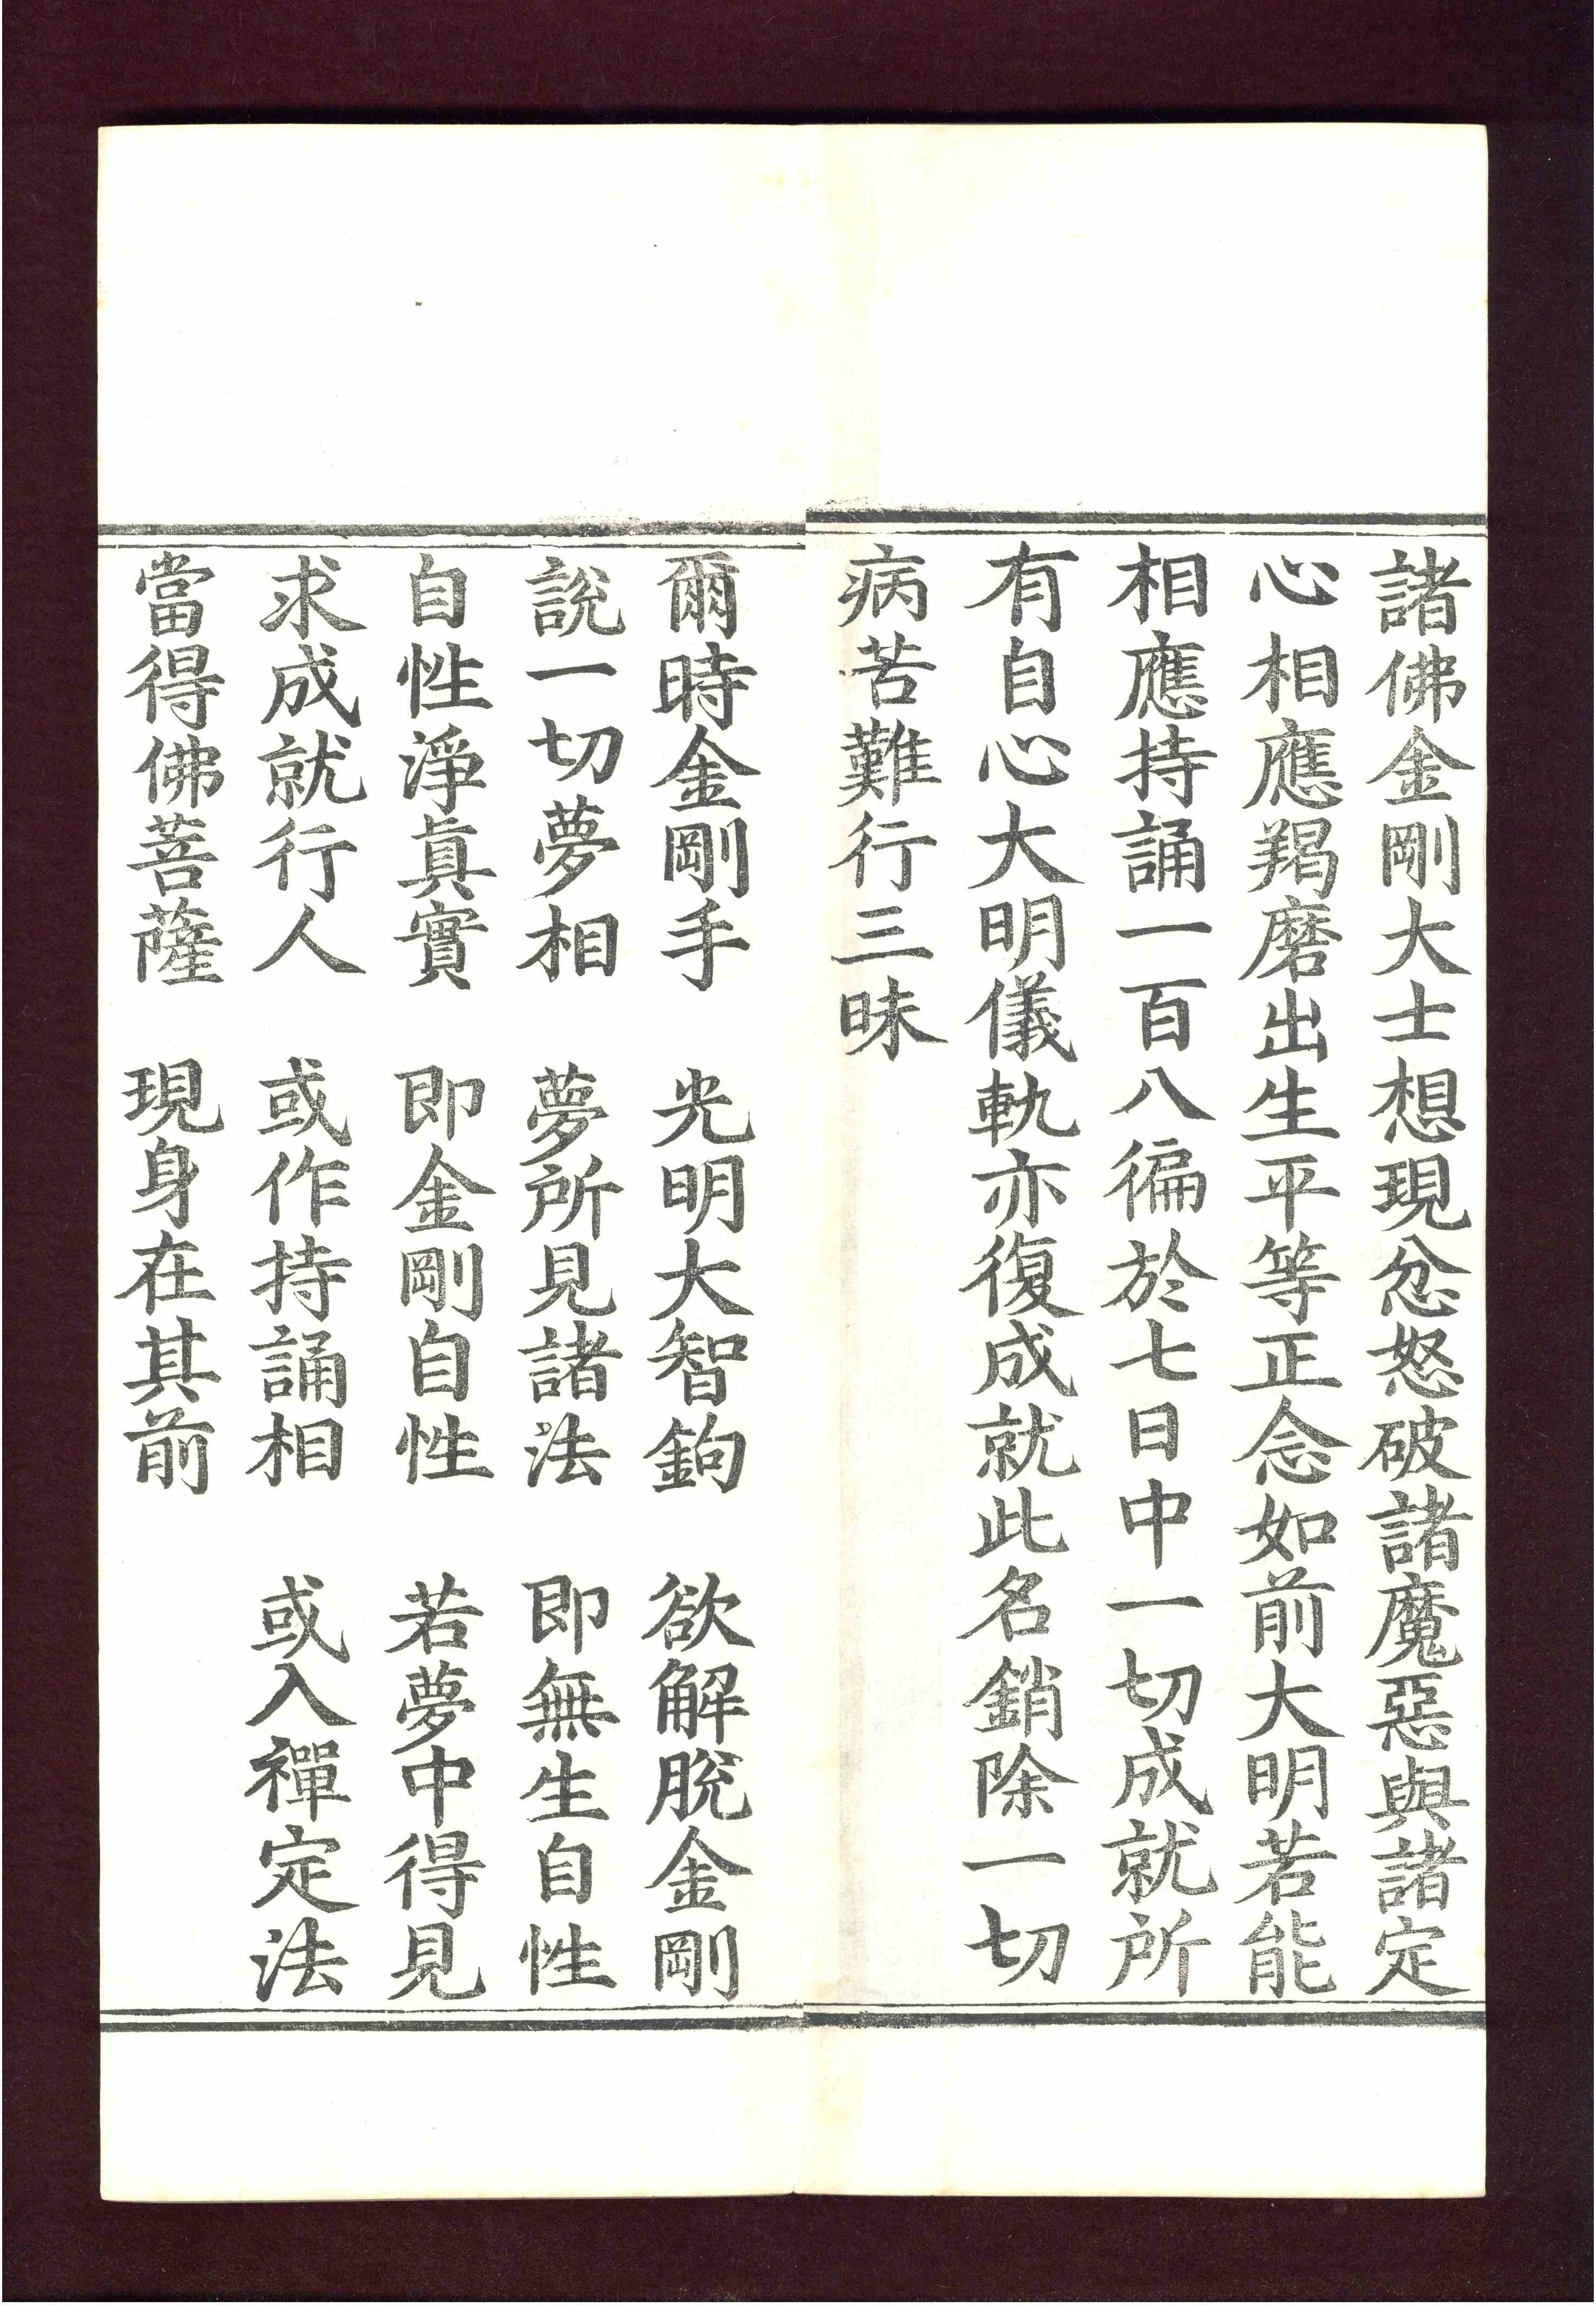 諸佛金剛大士想現忿怒破諸魔惡與諸定
心相應羯磨出生平等正念如前大明若能
相應持誦一百八徧於七日中一切成就所
有自心大明儀軌亦復成就此名銷除一切
病苦難行三昧
爾時金剛手　光明大智鉤　欲解脫金剛
說一切夢相　夢所見諸法　即無生自性
自性淨眞實　即金剛自性　若夢中得見
求成就行人　或作持誦相　或入禪定法
當得佛菩薩　現身在其前